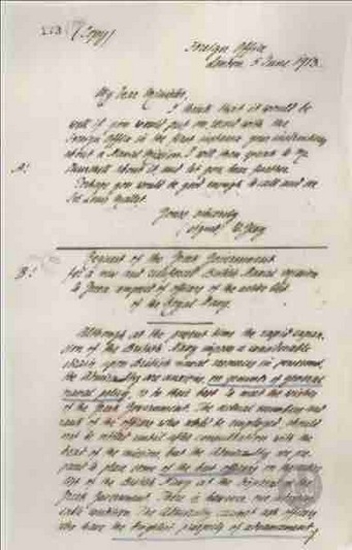 (Copy)
Foreign Office
London 5 June 1913.
My dear Minister,
I think that it would be
well if you would put me
Foreign Office in the first instance your
about a Naval Mission. I will then speak to Mr
Churchill about it and let you hear further.
Perhaps you would be good enough to call and see
Sir Louis Mallet.
A!
Yours sincerely
(signed) E. Grey
B!
Request of the Greek Government
for a new and British Naval mission
to Greece composed of officers of the active list
of the Royal Navy.
Although at the present time the rapid expan
sion of the British Navy imposes a considerable
strain upon British naval resources in personnel
the Admiralty are anxious, on grounds of general
naval policy, to do their best to meet the wishes
of the Greek Government. The actual numbers and
rank of the officers who would be employed, should
not be settled until after consultation with the
head of the mission, but the Admiralty are pre
pared to place some of the best officers on the active
list of the British Navy at the disposal of the
Greek Government. There is however one
The Admiralty cannot ask officers
who have the brightest prospects of advancement,